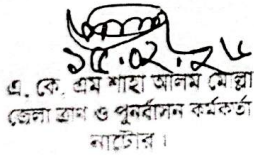 ১৫.০২.২৮
এ. কে. এম শাহা আলম মোল্লা
জেলা ত্রাণ ও পুনর্বাসন কর্মকর্তা
নাটোর।